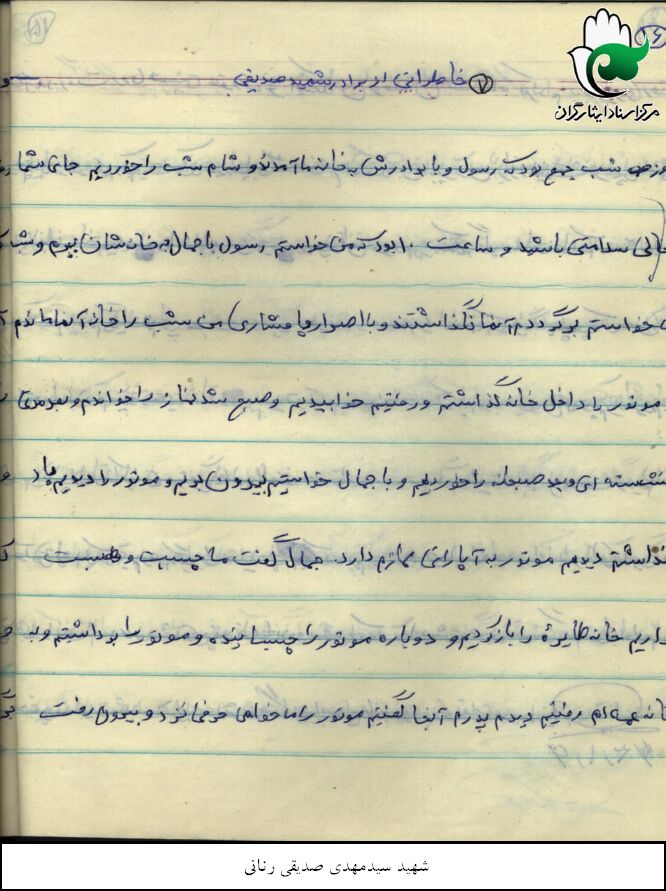 خاطراتی از برادر شهید صدیقی
مرکز اسناد ایثارگران
شب جمع بود که رسول و با برادرش به خانه ما آمدند و شام شب را خوردیم جای شما
سلامتی باشید و ساعت ۱۰ بود که من خواستم رسول با جمال به خانه‌شان بروم و شب
خواستم برگردم آنها نگذاشتند و با اصرار و پا فشاری من شب را خانه آنها ماندم
موتور را داخل خانه گذاشتم و رفتیم خوابیدیم و صبح شد نماز را خواندم و بعد
و بعد صبحانه را خوردیم و با جمال خواستیم بیرون برویم و موتور را دیدیم باد
دیدیم موتور به آپاراتی لازم دارد. جمال گفت ما چسب و
خانه را باز کردیم و دوباره موتور را و موتور را برداشتم و به
عمه‌ام رفتیم دیدم پدرم آنجا گفتیم موتور را ما خواهی حرفی نزد و بیرون رفت
شهید سیدمهدی صدیقی رنانی